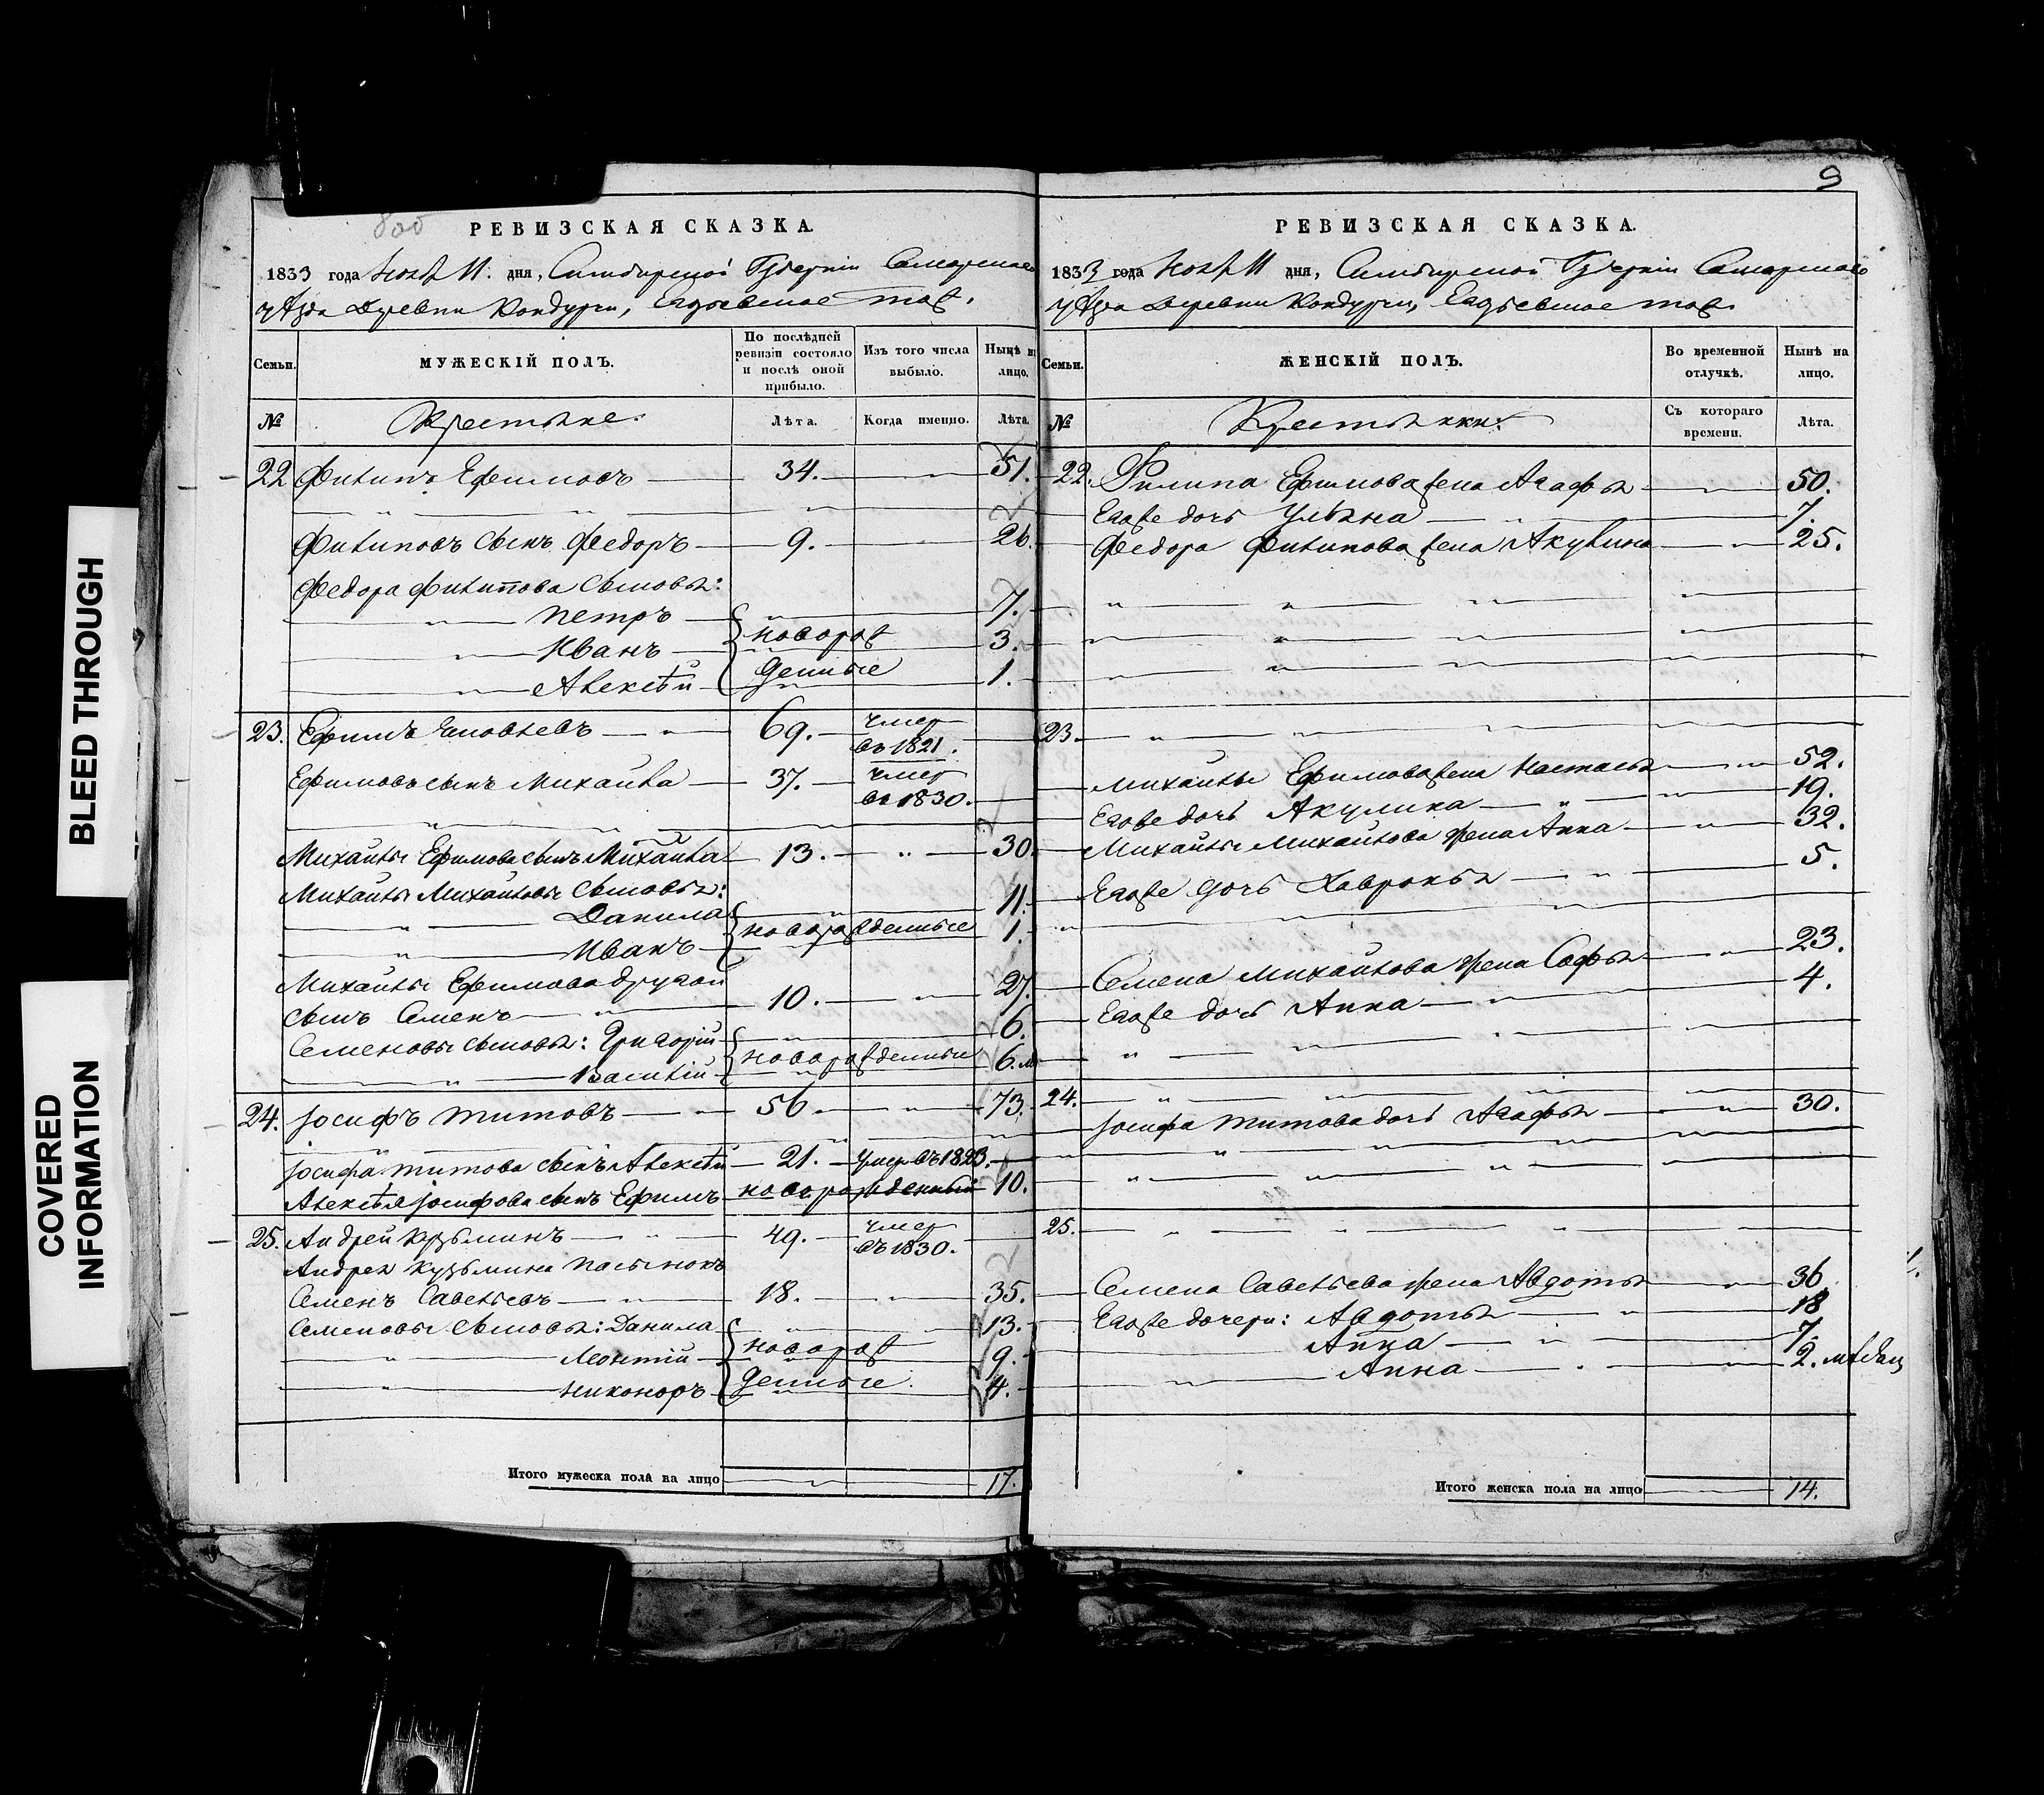 9
800
РЕВИЗСКАЯ СКАЗКА.
1833 года Нояб 11. дня, Симбирской Губернiи Самарскаго
уѣзда Деревни Кондурчи, тож.
Семьи. МУЖЕСКIЙ ПОЛЪ. По послѣдней ревизiи состояло и послѣ оной прибыло. Изъ того числа выбыло. Нынѣ на лицо.
№ Крестьяне. Лѣта. Когда именно. Лѣта.
22 Филипъ Ефимовъ 34. 51.
Филиповъ сынъ Федоръ 9. 26.
Федора Филипова сыновья:
Петръ 7.
Иванъ новорож 3.
Алексѣй денные 1.
23. Ефимъ Яковлевъ 69. умер въ 1821.
Ефимовъ сынъ Михайла 37. умер въ 1830.
Михайлы Ефимова сынъ Михайла 13. 30
Михайлы Михайловы сыновья:
Данила 11.
Иванъ новорожденные 1.
Михайлы Ефимова другой
сынъ Семенъ 10. 27.
Семеновы сыновья: Григорiй 6.
Василiй новорожденные 6. м
24. Iосифъ Титовъ 56 73.
Iосифа Титова сынъ Алексѣй 21. умер въ 1823.
Алексѣя Iосифова сынъ Ефимъ новорожденный 10.
25. Андрей Кузьминъ 49. умер въ 1830.
Андрея Кузьмина пасынокъ
Семенъ Савельевъ 18. 35.
Семеновы сыновья: Данила 13.
Леонтiй новорож 9.
Никоноръ денные. 4.
Итого мужеска пола на лицо 17.
РЕВИЗСКАЯ СКАЗКА.
1833 года Нояб 11 дня, Симбирской Губернiи Самарскаго
уѣзда Деревни Кондурчи, тож.
Семьи. ЖЕНСКIЙ ПОЛЪ. Во временной отлучкѣ. Нынѣ на лицо.
№ Крестьянки: Съ котораго времени. Лѣта.
22. Филипа Ефимова жена Агафья 50.
Егоже дочь Ульяна 7.
Федора Филипова жена Акулина 25.
23.
Михайлы Ефимова жена Настасья 52.
Егоже дочь Акулина 19.
Михайлы Михайлова жена Анна 32.
Егоже дочь Хавронья 5.
Семена Михайлова жена Софья 23.
Егоже дочь Анна 4.
24.
Iосифа Титова дочь Агафья 30.
25.
Семена Савельева жена Авдотья 36
Егоже дочери: Авдотья 18
Анна 7.
Анна 2. мѣсяц
Итого женска пола на лицо 14.
BLEED THROUGH
COVERED
INFORMATION